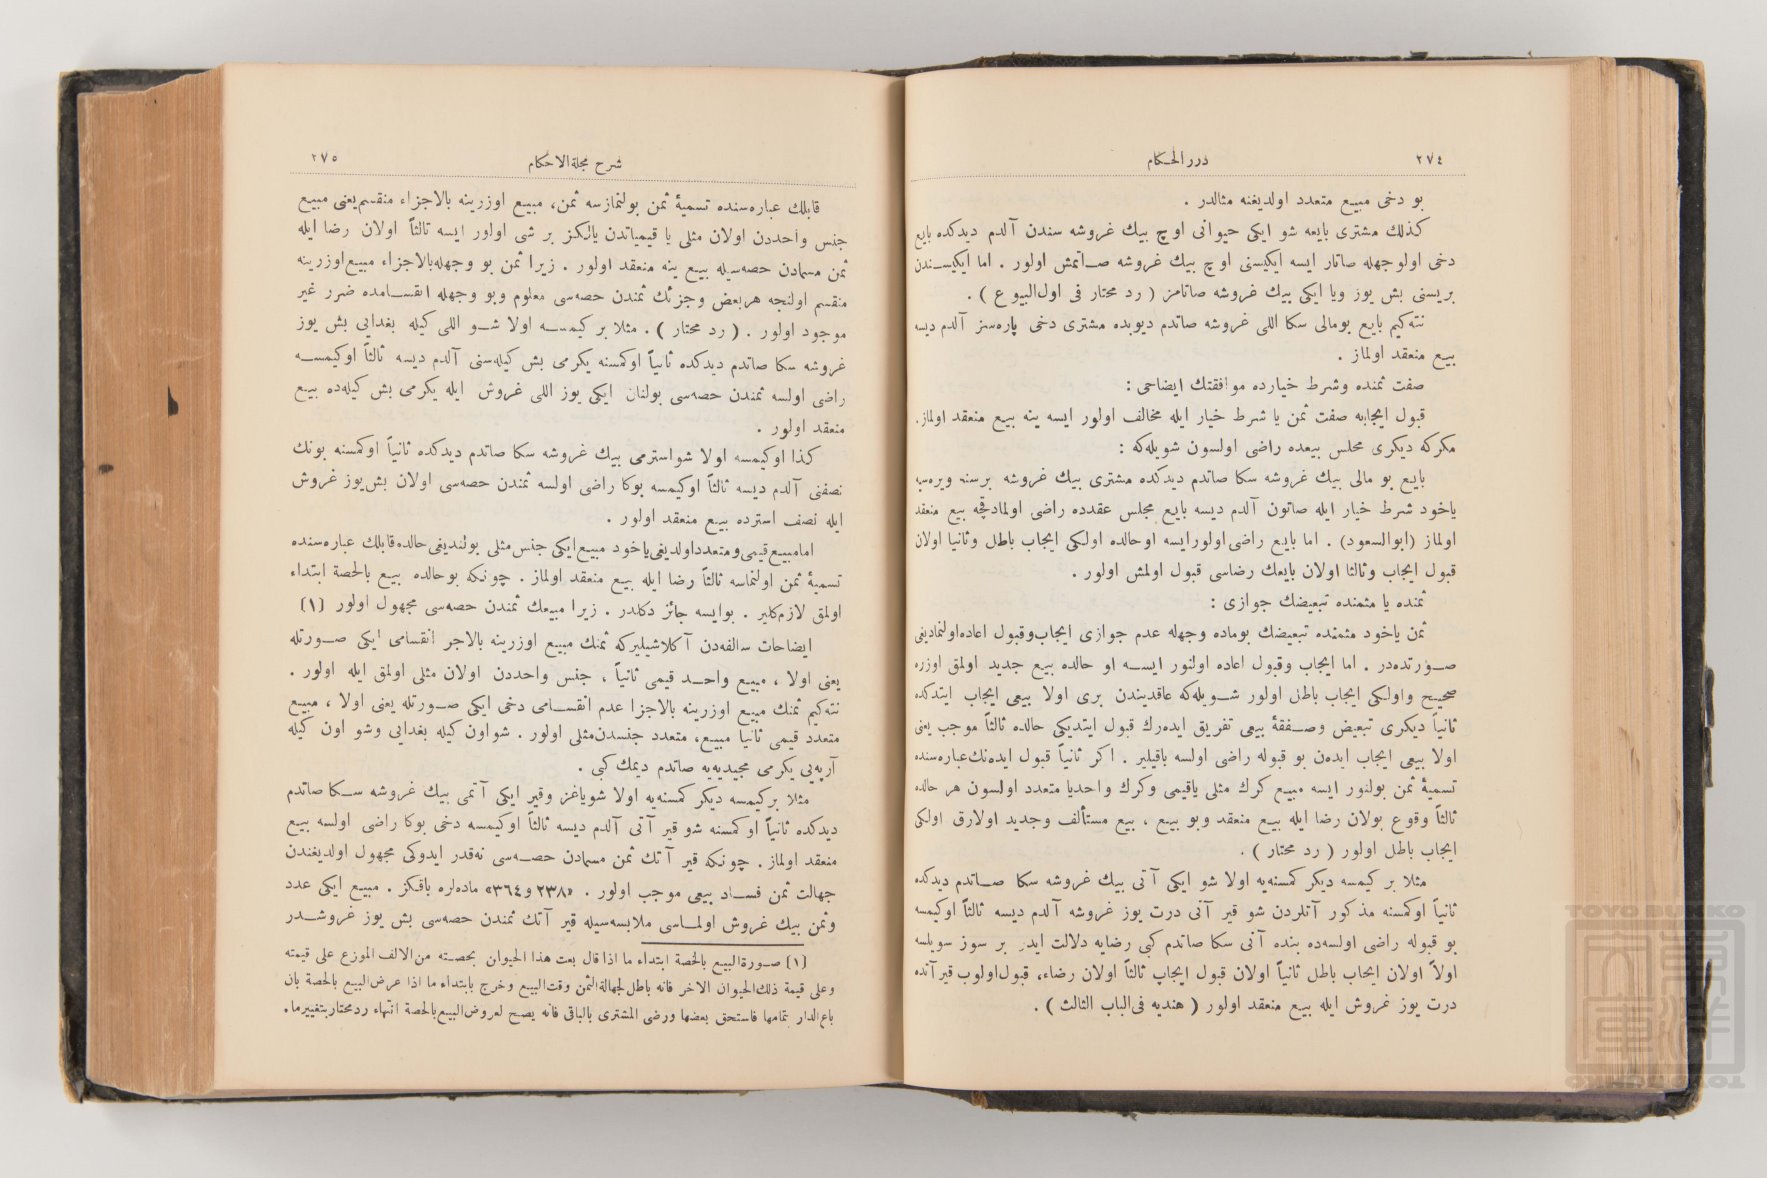 ٢٧٤
درر الحكام
بو دخى مبيع متعدد اولديغنه مثالدر .
كذلك مشترى بايعه شو ايكى حيوانى اوچ بيك غروشه سندن آلدم ديدكده بايع
دخى اولوجهله صاتار ايسه ايكيسنى اوچ بيك غروشه صاتمش اولور . اما ايكيسندن
بريسنى بش يوز ويا ايكى بيك غروشه صاتامز ( رد محتار فى اول البيوع ) .
نته كيم بايع بومالى سكا اللى غروشه صاتدم ديوبده مشترى دخى پاره سز آلدم ديسه
بيع منعقد اولماز .
صفت ثمنده وشرط خيارده موافقتك ايضاحى :
قبول ايجابه صفت ثمن يا شرط خيار ايله مخالف اولور ايسه ينه بيع منعقد اولماز.
مكركه ديكرى مجلس بيعده راضى اولسون شويله كه :
بايع بو مالى بيك غروشه سكا صاتدم ديدكده مشترى بيك غروشه برسنه ويره سيه
ياخود شرط خيار ايله صاتون آلدم ديسه بايع مجلس عقدده راضى اولمادقچه بيع منعقد
اولماز (ابوالسعود) . اما بايع راضى اولورايسه اوحالده اولكى ايجاب باطل وثانيا اولان
قبول ايجاب وثالثا اولان بايعك رضاسى قبول اولمش اولور .
ثمنده يا مثمنده تبعيضك جوازى :
ثمن ياخود مثمنده تبعيضك بوماده وجهله عدم جوازى ايجاب وقبول اعاده اولنماديغى
صورتده در . اما ايجاب وقبول اعاده اولنور ايسه او حالده بيع جديد اولمق اوزره
صحيح واولكى ايجاب باطل اولور شويله كه عاقديندن برى اولا بيعى ايجاب ايتدكده
ثانياً ديكرى تبعيض وصفقهٔ بيعى تفريق ايده رك قبول ايتديكى حالده ثالثاً موجب يعنى
اولا بيعى ايجاب ايدن بو قبوله راضى اولسه باقيلير . اكر ثانياً قبول ايده نك عباره سنده
تسميهٔ ثمن بولنور ايسه مبيع كرك مثلى ياقيمى وكرك واحديا متعدد اولسون هر حالده
ثالثاً وقوع بولان رضا ايله بيع منعقد وبو بيع ، بيع مستألف وجديد اولارق اولكى
ايجاب باطل اولور ( رد محتار ) .
مثلا بر كيمسه ديكر كمسنه يه اولا شو ايكى آتى بيك غروشه سكا صاتدم ديدكده
ثانياً اوكمسنه مذكور آتلردن شو قير آتى درت يوز غروشه آلدم ديسه ثالثاً اوكيمسه
بو قبوله راضى اولسه ده بنده آنى سكا صاتدم كبى رضايه دلالت ايدر بر سوز سويلسه
اولاً اولان ايجاب باطل ثانياً اولان قبول ايجاب ثالثاً اولان رضاء، قبول اولوب قيرآنده
درت يوز غروش ايله بيع منعقد اولور ( هنديه فى الباب الثالث ) .
شرح مجلة الاحكام
٢٧٥
قابلك عباره سنده تسميهٔ ثمن بولنمازسه ثمن، مبيع اوزرينه بالاجزاء منقسم يعنى مبيع
جنس واحددن اولان مثلى يا قيمياتدن يالكز بر شى اولور ايسه ثالثاً اولان رضا ايله
ثمن مسمادن حصه سيله بيع ينه منعقد اولور . زيرا ثمن بو وجهله بالاجزاء مبيع اوزرينه
منقسم اولنجه هربعض وجزئك ثمندن حصه سى معلوم وبو وجهله انقسامده ضرر غير
موجود اولور . ( رد محتار ) . مثلا بر كيمسه اولا شو اللى كيله بغدايى بش يوز
غروشه سكا صاتدم ديدكده ثانياً اوكمسنه يكرمى بش كيله سنى آلدم ديسه ثالثاً اوكيمسه
راضى اولسه ثمندن حصه سى بولنان ايكى يوز اللى غروش ايله يكرمى بش كيله ده بيع
منعقد اولور .
كذا اوكيمسه اولا شواسترمى بيك غروشه سكا صاتدم ديدكده ثانياً اوكمسنه بونك
نصفنى آلدم ديسه ثالثاً اوكيمسه بوكا راضى اولسه ثمندن حصه سى اولان بش يوز غروش
ايله نصف استرده بيع منعقد اولور .
اما مبيع قيمى ومتعدد اولديغى ياخود مبيع ايكى جنس مثلى بولنديغى حالده قابلك عباره سنده
تسميهٔ ثمن اولنماسه ثالثاً رضا ايله بيع منعقد اولماز . چونكه بوحالده بيع بالحصة ابتداء
اولمق لازم كلير . بوايسه جائز دكلدر . زيرا مبيعك ثمندن حصه سى مجهول اولور (١)
ايضاحات سالفه دن آكلاشيليركه ثمنك مبيع اوزرينه بالاجر انقسامى ايكى صورتله
يعنى اولا ، مبيع واحد قيمى ثانياً ، جنس واحددن اولان مثلى اولمق ايله اولور .
نته كيم ثمنك مبيع اوزرينه بالاجزا عدم انقسامى دخى ايكى صورتله يعنى اولا ، مبيع
متعدد قيمى ثانيا مبيع، متعدد جنسدن مثلى اولور . شواون كيله بغدايى وشو اون كيله
آرپه يى يكرمى مجيديه يه صاتدم ديمك كبى .
مثلا بركيمسه ديكر كمسنه يه اولا شوياغز وقير ايكى آتمى بيك غروشه سكا صاتدم
ديدكده ثانياً اوكمسنه شو قير آتى آلدم ديسه ثالثاً اوكيمسه دخى بوكا راضى اولسه بيع
منعقد اولماز . چونكه قير آتك ثمن مسمادن حصه سى نه قدر ايدوكى مجهول اولديغندن
جهالت ثمن فساد بيعى موجب اولور . «٢٣٨ و ٣٦٤» ماده لره باقكز . مبيع ايكى عدد
وثمن بيك غروش اولماسى ملابسه سيله قير آتك ثمندن حصه سى بش يوز غروشدر
(١) صورة البيع بالحصة ابتداء ما اذا قال بعت هذا الحيوان بحصته من الالف الموزع على قيمته
وعلى قيمة ذلك الحيوان الاخر فانه باطل لجهالة الثمن وقت البيع وخرج بابتداء ما اذا عرض البيع بالحصة بان
باع الدار بتمامها فاستحق بعضها ورضى المشترى بالباقى فانه يصح لعروض البيع بالحصة انتهاء ردمحتار بتغيير ما.
TOYO BUNKO